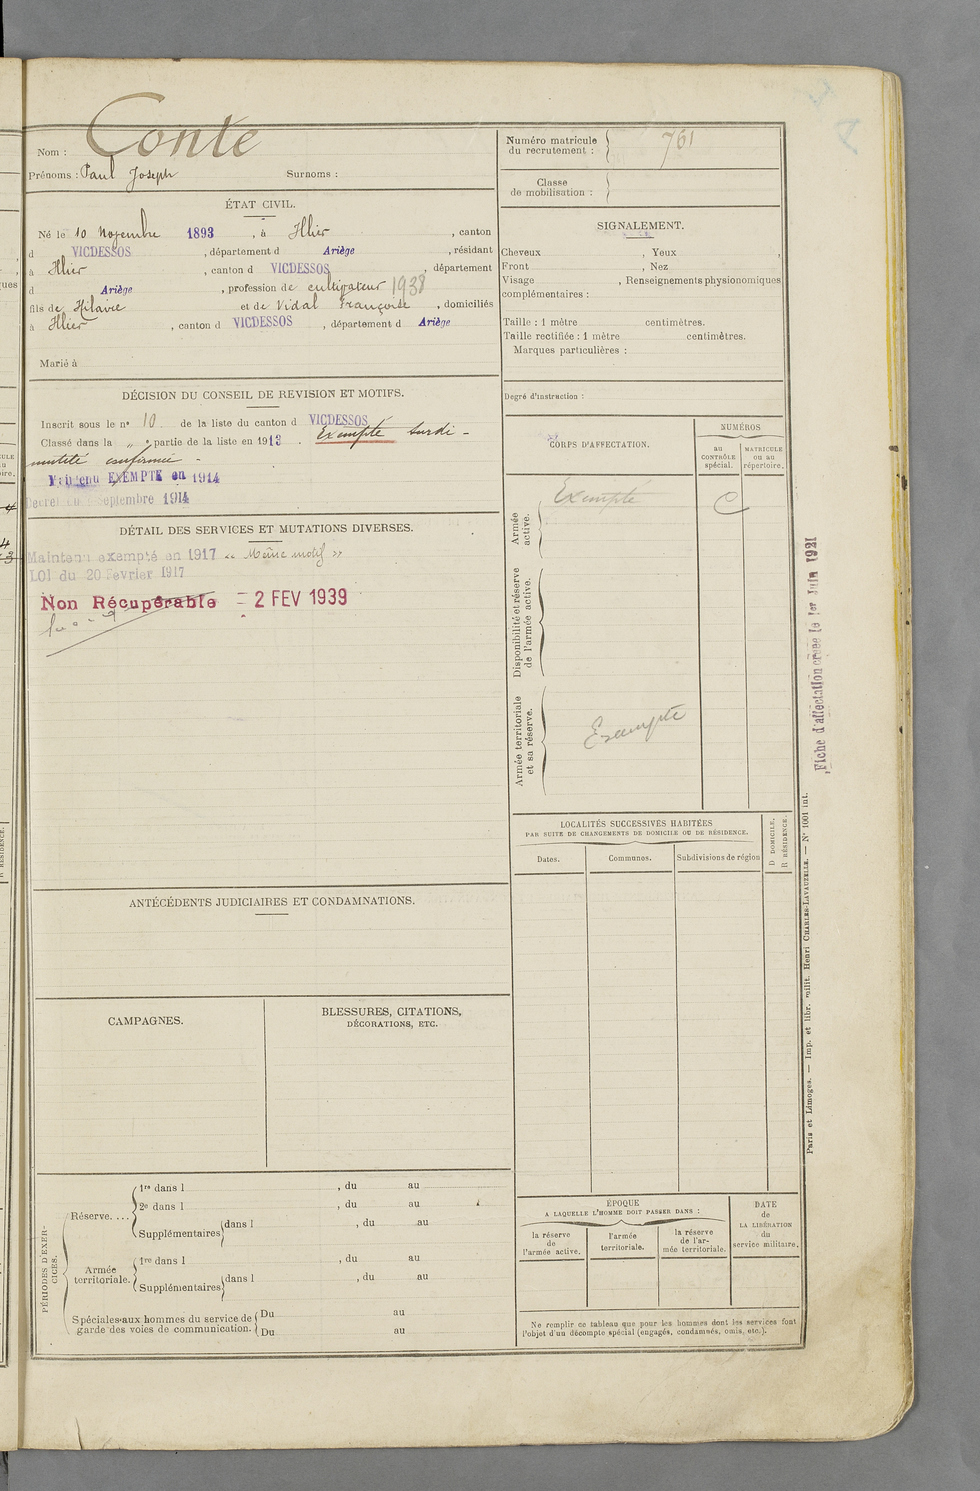 Nom : Conte
Prénoms : Paul Joseph Surnoms :
ÉTAT CIVIL.
Né le 10 Novembre 1893, à Illier, canton
d VICDESSOS, département d Ariège, résidant
à Illier, canton d VICDESSOS, département
d Ariège, profession de cultivateur 1938
fils de Hilaire et de Vidal Françoise, domiciliés
à Illier, canton d VICDESSOS, département d Ariège
Marié à
DÉCISION DU CONSEIL DE REVISION ET MOTIFS.
Inscrit sous le no 10 de la liste du canton d VICDESSOS
Classé dans la " e partie de la liste en 1913. Exempté Surdi-
mutité confirmée -
Maintenu EXEMPTÉ en 1914
Décret du Septembre 1914
DÉTAIL DES SERVICES ET MUTATIONS DIVERSES.
Maintenu exempté en 1917 « Même motif »
LOI du 20 Fevrier 1917
Non Récupérable = 2 FEV 1939
ANTÉCÉDENTS JUDICIAIRES ET CONDAMNATIONS.
CAMPAGNES.
BLESSURES, CITATIONS,
DÉCORATIONS, ETC.
PÉRIODES D'EXER-
CICES.
Réserve....
1re dans l , du au
2e dans l , du au
Supplémentaires dans l , du au
Armée
territoriale.
1re dans l , du au
Supplémentaires dans l , du au
Spéciales aux hommes du service de
garde des voies de communication.
Du au
Du au
Numéro matricule
du recrutement : 761
Classe
de mobilisation :
SIGNALEMENT.
Cheveux , Yeux ,
Front , Nez
Visage , Renseignements physionomiques
complémentaires :
Taille : 1 mètre centimètres.
Taille rectifiée : 1 mètre centimètres.
Marques particulières :
Degré d'instruction :
CORPS D'AFFECTATION.
NUMÉROS
au
CONTRÔLE
spécial.
MATRICULE
ou au
répertoire.
Armée
active.
Exempté
C
Disponibilité et réserve
de l'armée active.
Armée territoriale
et sa réserve.
Exempté
LOCALITÉS SUCCESSIVES HABITÉES
PAR SUITE DE CHANGEMENTS DE DOMICILE OU DE RÉSIDENCE.
D DOMICILE.
R RÉSIDENCE.
Dates. Communes. Subdivisions de région
ÉPOQUE
A LAQUELLE L'HOMME DOIT PASSER DANS :
la réserve
de
l'armée active.
l'armée
territoriale.
la réserve
de l'ar-
mée territoriale.
DATE
de
LA LIBÉRATION
du
service militaire.
Ne remplir ce tableau que pour les hommes dont les services font
l'objet d'un décompte spécial (engagés, condamnés, omis, etc.).
Fiche d'affectation créée le 1er Juin 1921
Paris et Limoges. — Imp. et libr. milit. Henri CHARLES-LAVAUZELLE. — No 1001 int.